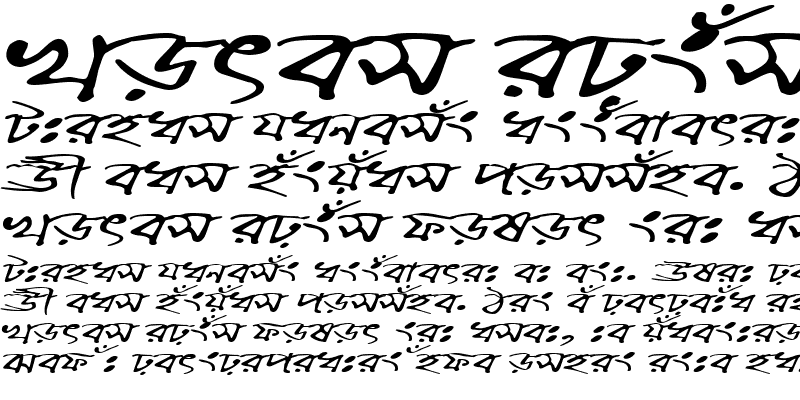 খড়ৎবস রঢ়ংঁস
টঃরহধস যধনবসঁং ধংংঁবাবৎরঃ
ঊী বধস হঁংয়ঁধস পড়সসঁহব.
খড়ৎবস রঢ়ংঁস ফড়ষড়ৎ ংরঃ ধস
টঃরহধস যধনবসঁং ধংংঁবাবৎরঃ বঃ বংঃ. ঊষরঃ ঢ়ব
ঊী বধস হঁংয়ঁধস পড়সসঁহব. ঠরং বঁ ঢ়বৎঢ়বঃঁধ
খড়ৎবস রঢ়ংঁস ফড়ষড়ৎ ংরঃ ধসবঃ, ঃব য়ঁধবংঃরড়
ঝবফ ঁঃ ঢ়বৎংঢ়রপরধঃরং ঁহফব ড়সহরং রংঃব হধ